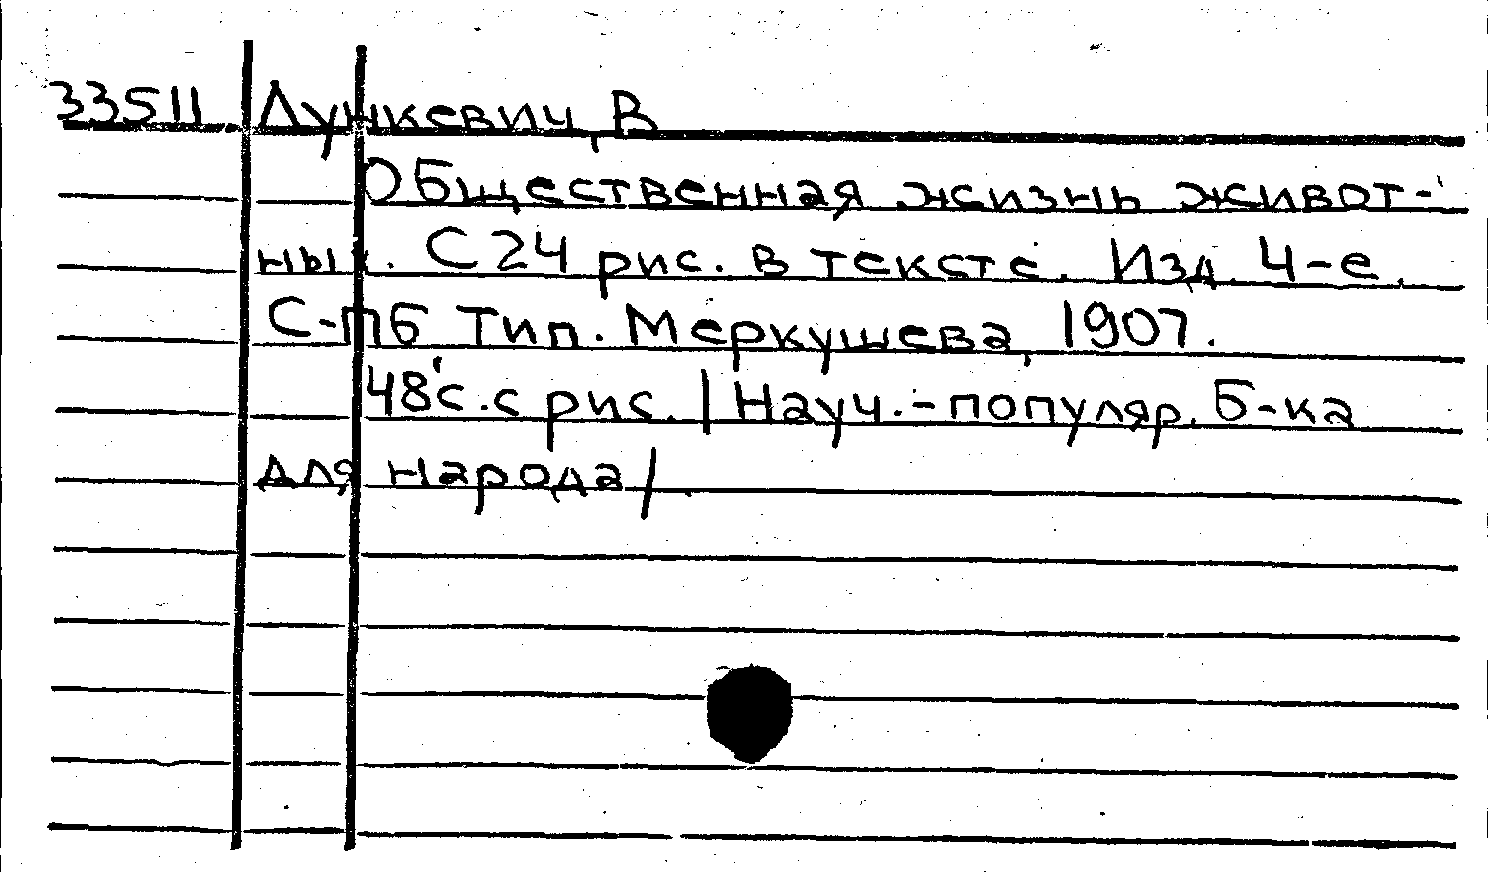 33511 Лункевич, В
Общественная жизнь живот-
ных. С 24 рис. в тексте. Изд. 4-е.
С-Пб Тип. Меркушева, 1907.
48 с. с рис. | Науч.-популяр. Б-ка
для народа/.